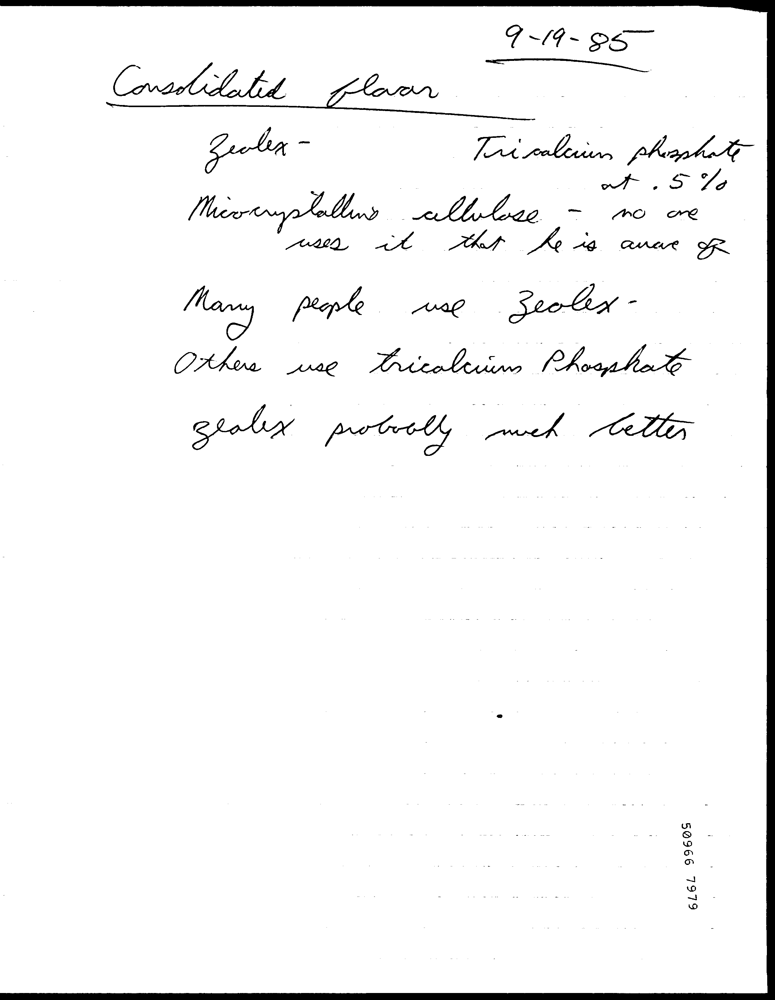 9-19-85
Consolidated flavor
Zeolex - Tricalcium phosphate
at .5%
Microcrystalline cellulose - no one
uses it that he is aware of
Many people use Zeolex -
Others use tricalcium Phosphate
zeolex probably much better
50966 7979